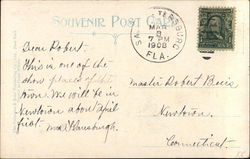 SOUVENIR POST CARD
MAR
8
7 PM
1908
FLA.
Dear Robert.
This is one of the
show places of the
town. We will be in
Newtown about April
first.
Master Robert
Newtown.
Connecticut.